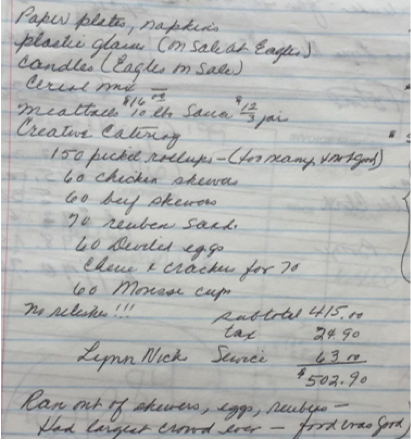 Paper plates, napkins
plastic glasses (on sale at Eagles)
Candles (Eagles on Sale)
Cereal mix —
meatballs $16.00 10 lbs Sauce $12 3 jars
Creative Catering
150 pickel rollups - (too many & not good)
60 chicken skewers
60 beef skewers
70 reuben sand.
60 Deviled eggs
Cheese & crackers for 70
60 Mousse cups
No relishes!!!
subtotal 415.00
tax 24.90
Lynn Nicks Service 63.00
$502.90
Ran out of skewers, eggs, reubens —
Had largest crowd ever — food was good